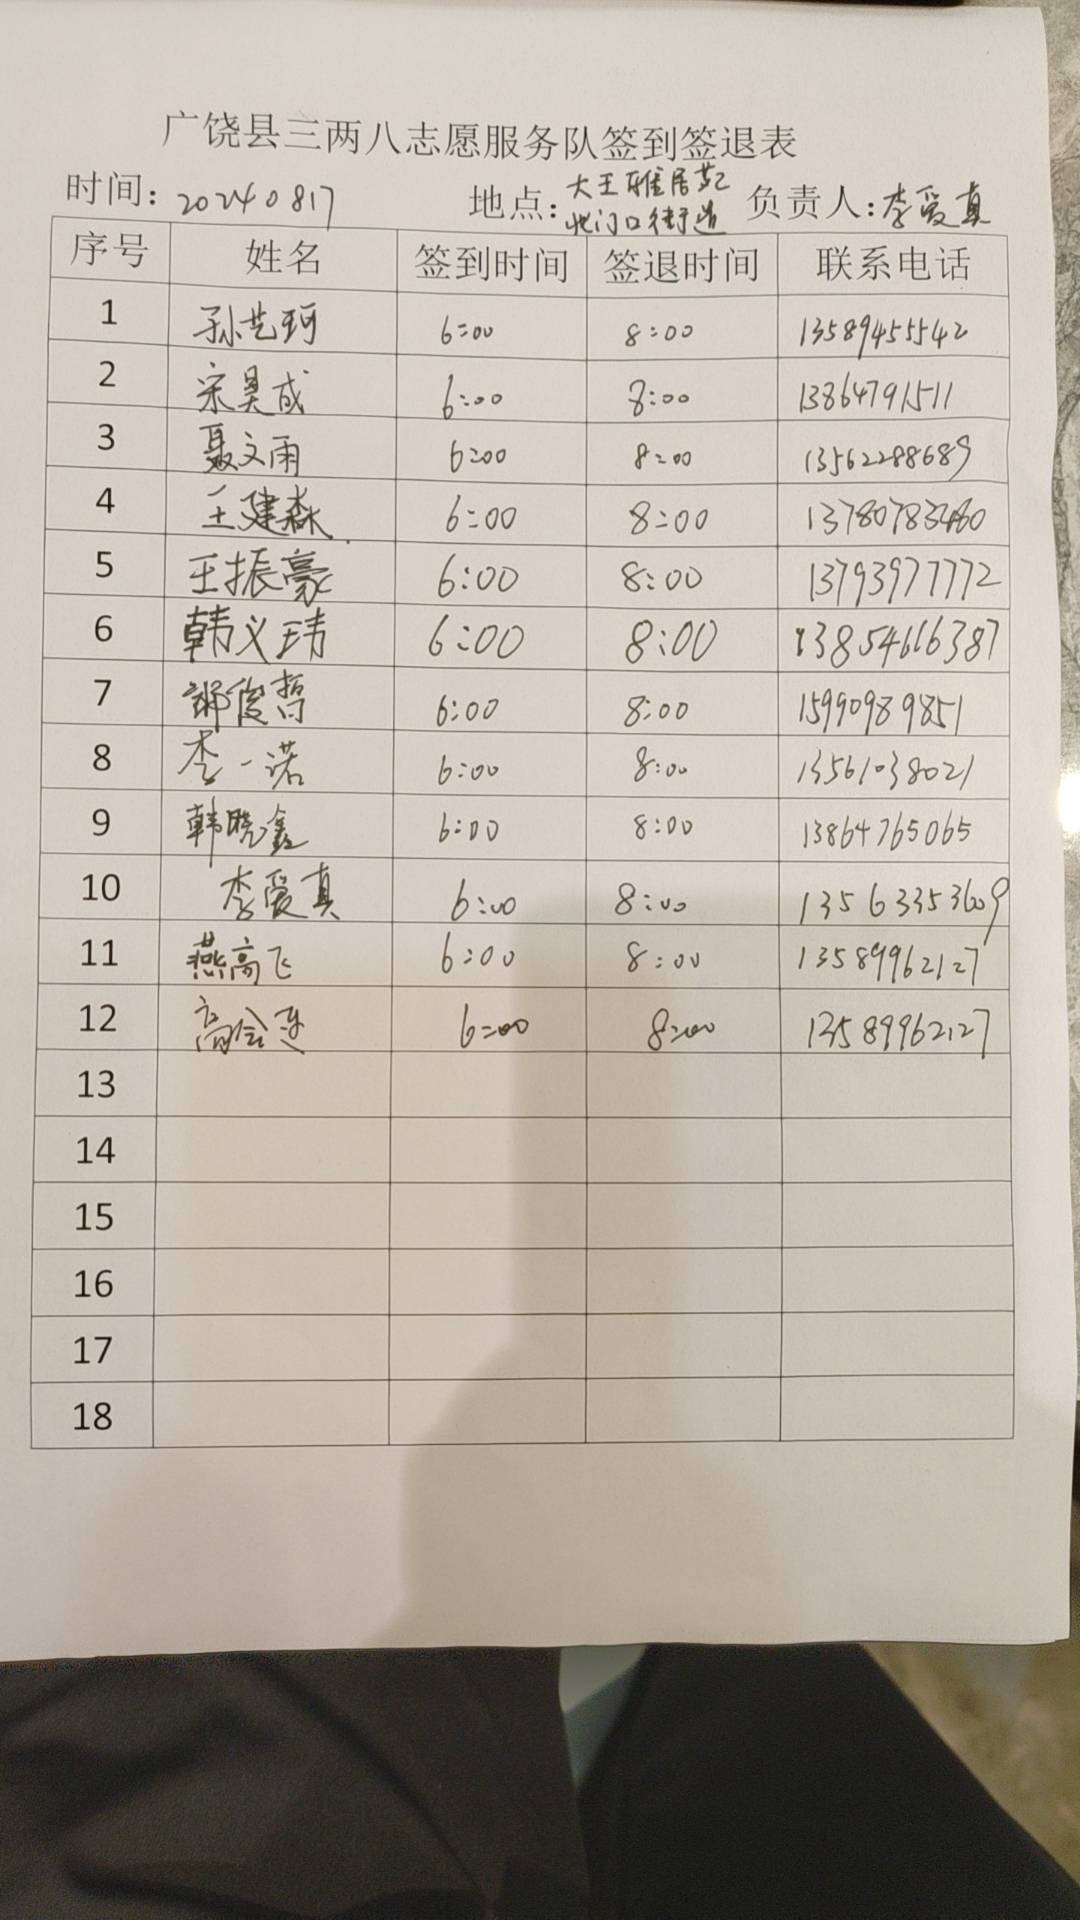 广饶县三两八志愿服务队签到签退表
时间: 20240817 地点: 大王雅居苑 北门口街道 负责人: 李爱真
序号 姓名 签到时间 签退时间 联系电话
1 孙艺珂 6:00 8:00 13589455542
2 宋昊成 6:00 8:00 13864791511
3 聂文雨 6:00 8:00 13562288689
4 王建森 6:00 8:00 13780783480
5 王振豪 6:00 8:00 13793977772
6 韩义玮 6:00 8:00 13854616387
7 俊哲 6:00 8:00 15990989851
8 李一诺 6:00 8:00 13561038021
9 韩晓鑫 6:00 8:00 13864765065
10 李爱真 6:00 8:00 13563353609
11 燕高飞 6:00 8:00 13589962127
12 高会连 6:00 8:00 13589962127
13
14
15
16
17
18